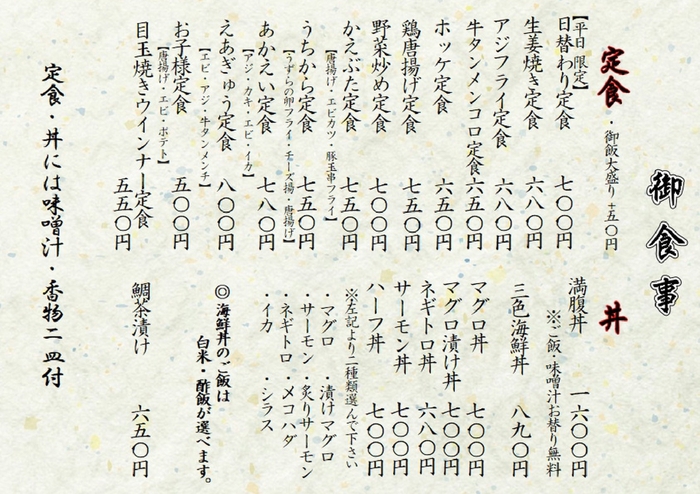 御食事
定食・御飯大盛り+五〇円
【平日限定】
日替わり定食 七〇〇円
生姜焼き定食 六八〇円
アジフライ定食 六八〇円
牛タンメンコロ定食 六五〇円
ホッケ定食 六五〇円
鶏唐揚げ定食 七五〇円
野菜炒め定食 七〇〇円
かえぶた定食 七五〇円
【唐揚げ・エビカツ・豚玉串フライ】
うちから定食 七五〇円
【うずらの卵フライ・チーズ揚・唐揚げ】
あかえい定食 七八〇円
【アジ・カキ・エビ・イカ】
えあぎゅう定食 八〇〇円
【エビ・アジ・牛タンメンチ】
お子様定食 五〇〇円
【唐揚げ・エビ・ポテト】
目玉焼きウインナー定食 五五〇円
丼
満腹丼 一六〇〇円
※ご飯・味噌汁お替り無料
三色海鮮丼 八九〇円
マグロ丼 七〇〇円
マグロ漬け丼 七〇〇円
ネギトロ丼 六八〇円
サーモン丼 七〇〇円
ハーフ丼 七〇〇円
※左記より二種類選んで下さい
・マグロ ・漬けマグロ
・サーモン ・炙りサーモン
・ネギトロ ・メコハダ
・イカ ・シラス
◎海鮮丼のご飯は
白米・酢飯が選べます。
鯛茶漬け 六五〇円
定食・丼には味噌汁・香物二皿付